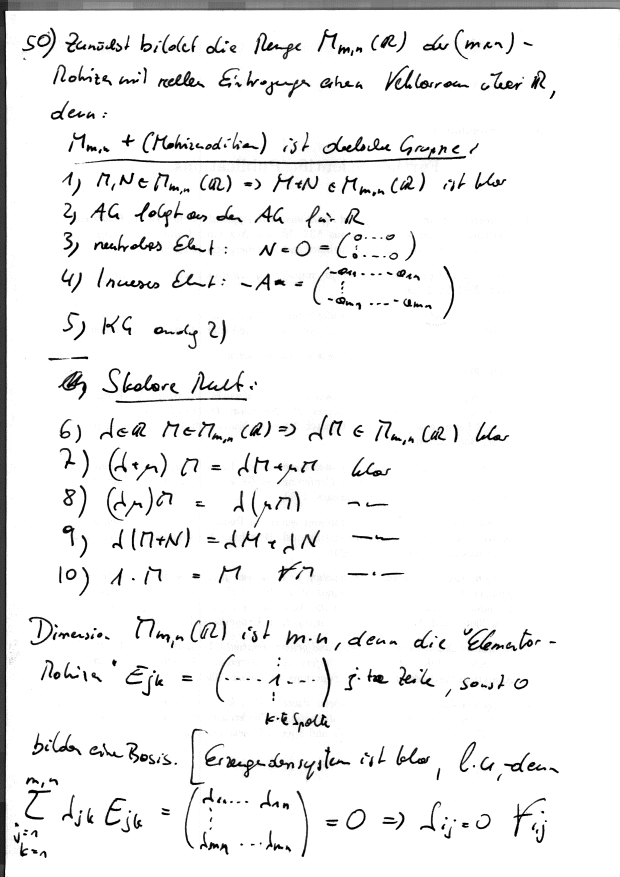 50) Zunächst bildet die Menge M_{m,n}(ℝ) der (m×n) -
Matrizen mit reellen Eintragungen einen Vektorraum über ℝ,
denn:
M_{m,n} + (Matrixaddition) ist abelsche Gruppe:
1) M, N ∈ M_{m,n}(ℝ) => M+N ∈ M_{m,n}(ℝ) ist klar
2) AG folgt aus den AG für ℝ
3) neutrales Elmt: N = O = (0...0 ⋮ 0...0)
4) Inverses Elmt: -A = (-a_{11} .... -a_{1n} ⋮ -a_{m1} .... -a_{mn})
5) KG analog 2)
Skalare Mult:
6) λ∈ℝ M∈M_{m,n}(ℝ) => λM ∈ M_{m,n}(ℝ) klar
7) (λ+μ) M = λM+μM klar
8) (λμ)M = λ(μM) —〃—
9) λ(M+N) = λM + λN —〃—
10) 1·M = M ∀M —〃—
Dimension M_{m,n}(ℝ) ist m·n, denn die "Elementar-
Matrizen" E_{jk} = (.... 1 ....) j-te Zeile, sonst 0
k-te Spalte
bilden eine Basis. [Erzeugendensystem ist klar, l.u., denn
∑_{j=1, k=1}^{m,n} λ_{jk} E_{jk} = (λ_{11} ... λ_{1n} ⋮ λ_{m1} ... λ_{mn}) = 0 => λ_{ij} = 0 ∀ i,j